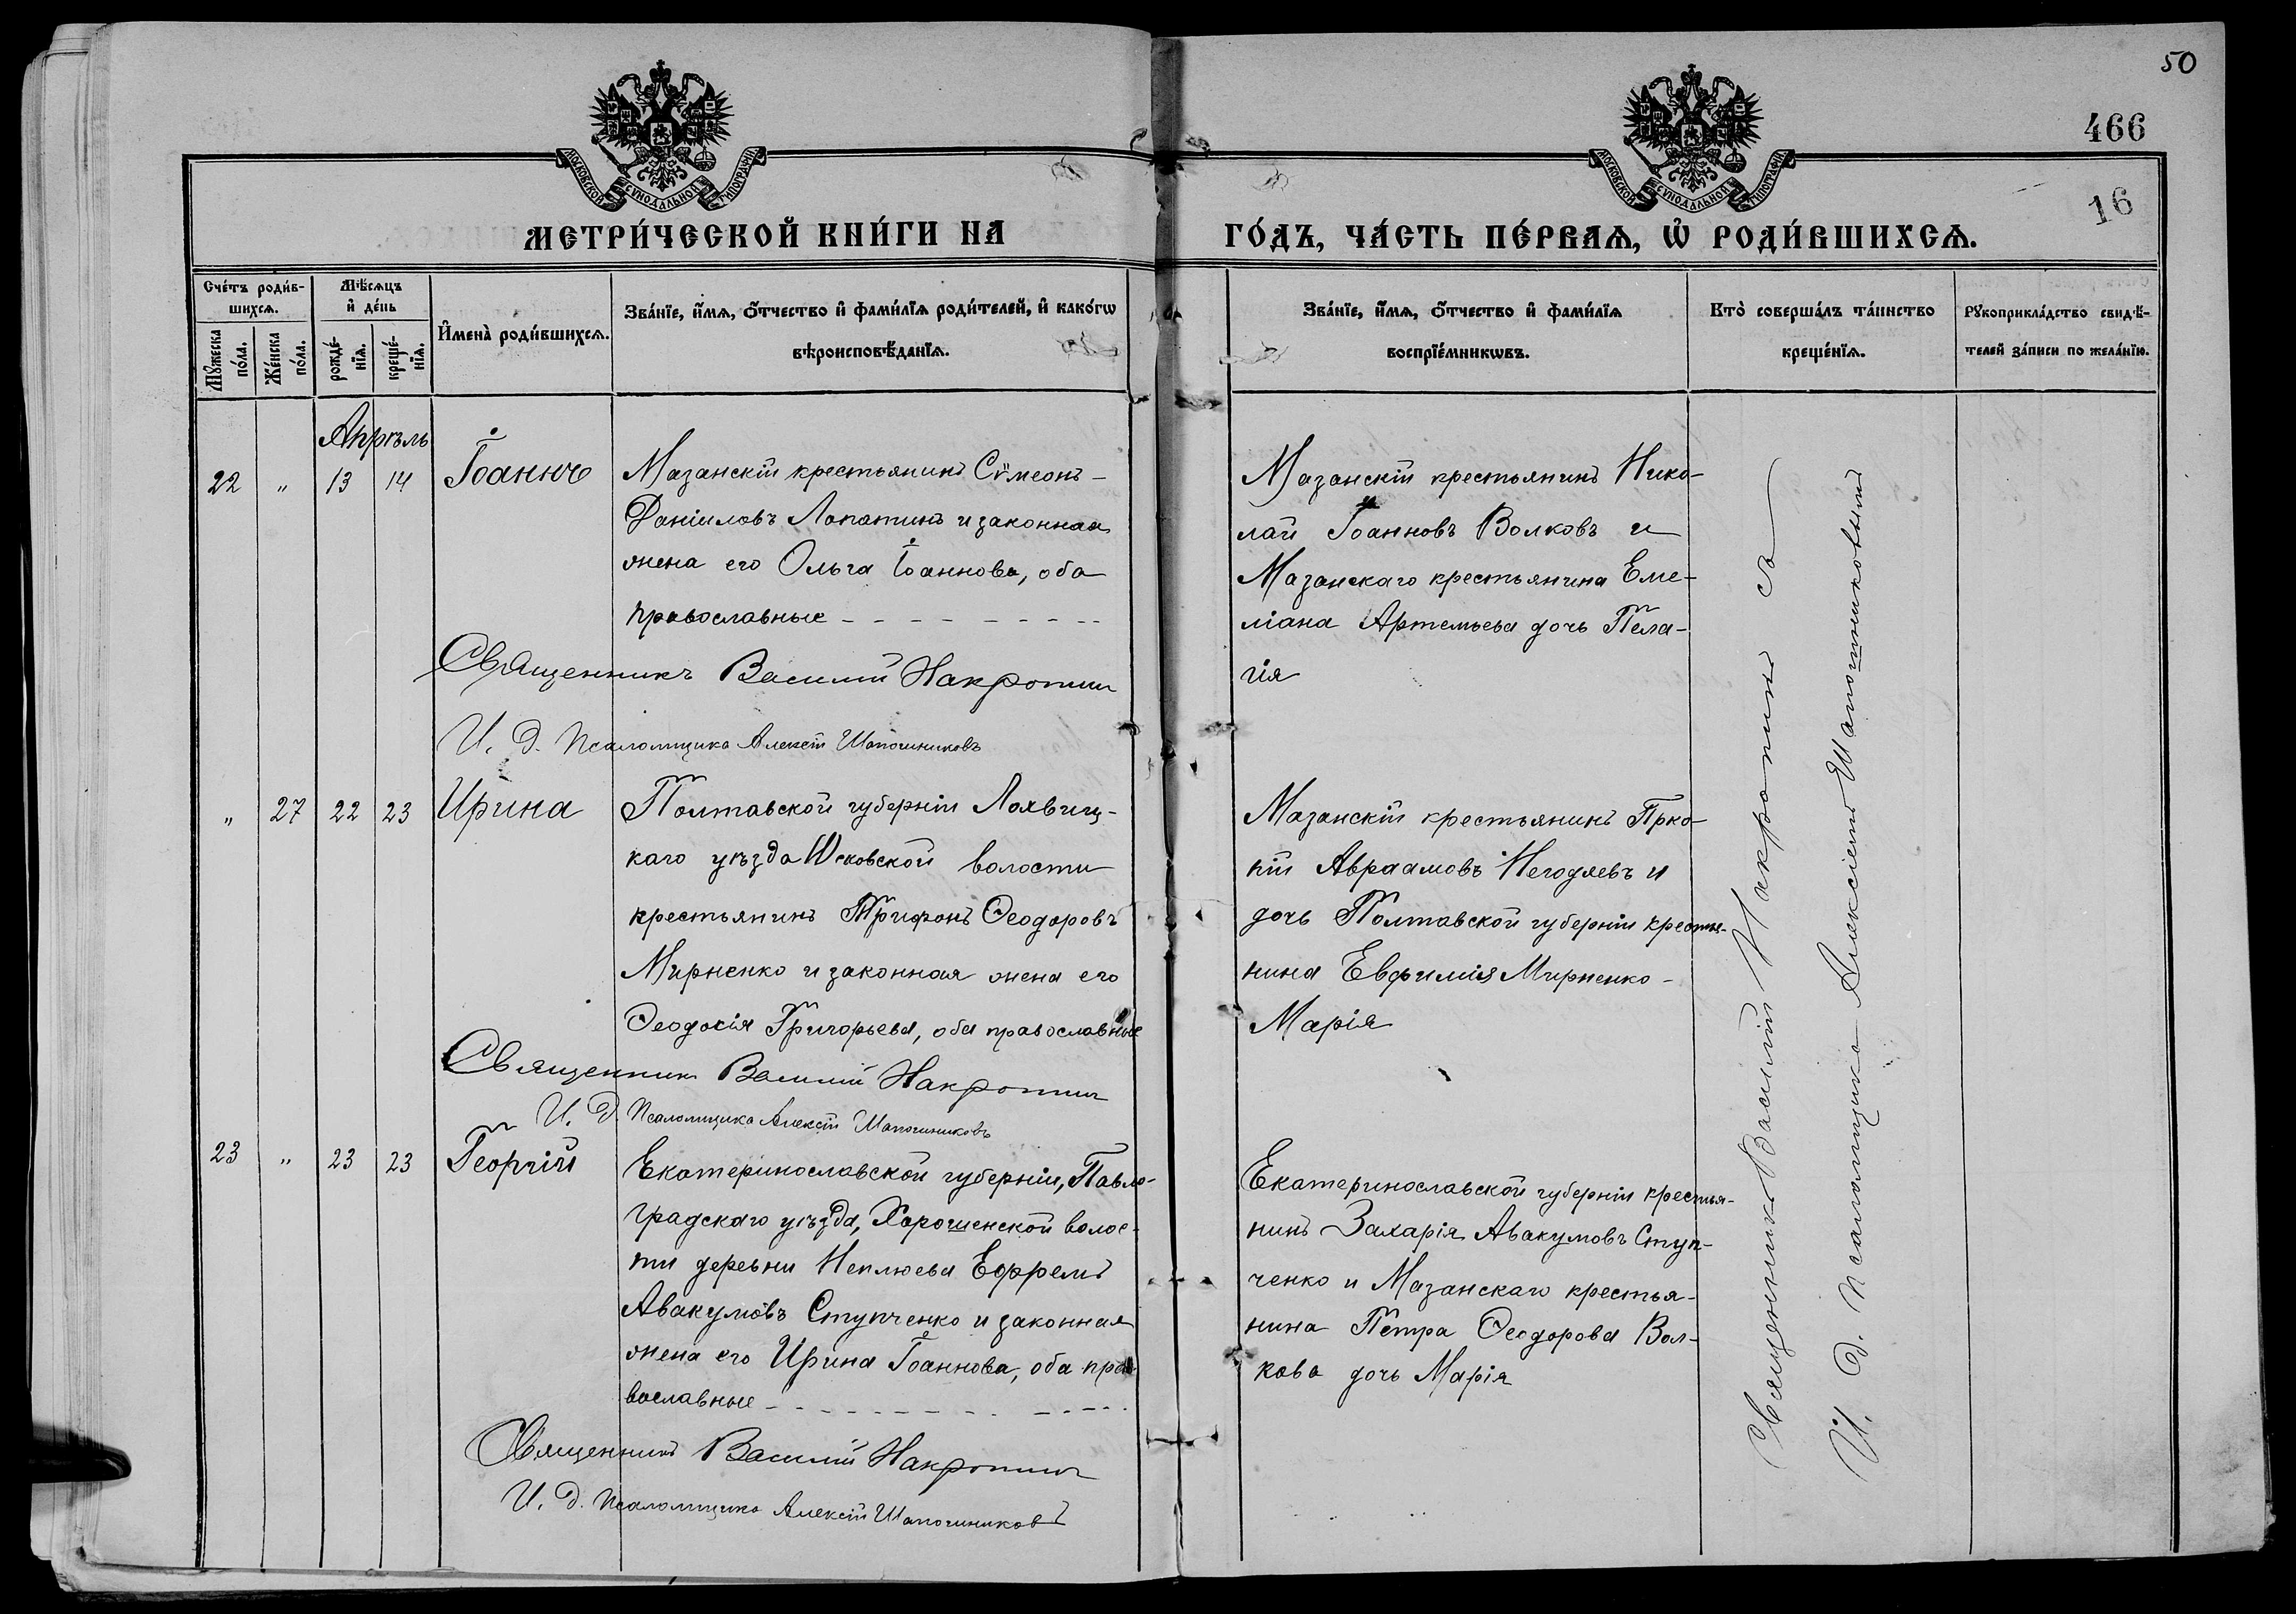 50
466
16
МОСКОВСКОЙ СѴНОДАЛЬНОЙ ТИПОГРАФІИ
МОСКОВСКОЙ СѴНОДАЛЬНОЙ ТИПОГРАФІИ
МЕТРИ́ЧЕСКОЙ КНИ́ГИ НА
ГО́ДЪ, ЧА́СТЬ ПЕ́РВАѦ, Ѡ҆ РОДИ́ВШИХСѦ.
Сче́тъ роди́в-
шихсѧ.
Мꙋ́жеска по́ла.
Же́нска по́ла.
Мѣ́сѧцъ
и҆ де́нь
рожде́-нїѧ.
креще́-нїѧ.
И҆мена̀ роди́вшихсѧ.
Зва́нїе, и҆́мѧ, ѻ҆́тчество и҆ фами́лїѧ роди́телей, и҆ како́гѡ
вѣроисповѣ́данїѧ.
Зва́нїе, и҆́мѧ, ѻ҆́тчество и҆ фами́лїѧ
воспрїе́мникѡвъ.
Кто̀ соверша́лъ та́инство
креще́нїѧ.
Рꙋкоприкла́дство свидѣ́-
телей за́писи по жела́нїю.
Апрѣль
22 " 13 14 Іоаннъ
Мазанскій крестьянинъ Сѵмеонъ -
Даніиловъ Лопатинъ и законная
жена его Ольга Іоаннова, оба
православные - - - - - - - - -
Священникъ Василій Накропин
И. д. Псаломщика Алексій Шапошниковъ
Мазанскій крестьянинъ Нико-
лай Іоанновъ Волковъ и
Мазанскаго крестьянина Еме-
ліана Артемьева дочь Пела-
гія
" 27 22 23 Ирина
Полтавской губерніи Лохвиц-
каго уѣзда Исковской волости
крестьянинъ Трифонъ Ѳеодоровъ
Мирненко и законная жена его
Ѳеодосія Григорьева, оба православные
Священник Василій Накропин
И. д. Псаломщика Алексій Шапошниковъ
Мазанскій крестьянинъ Прко-
пій Авраамовъ Негодяевъ и
дочь Полтавской губерніи крестья-
нина Евфимія Мирненко -
Марія
23 " 23 23 Георгій
Екатеринославской губерніи, Павло-
градскаго уѣзда, Хорошенской волос-
ти деревни Неплюева Ефремъ
Авакумовъ Ступченко и законная
жена его Ирина Іоаннова, оба пра-
вославные - - - - - - - - - - - - -
Священникъ Василій Накропин
И. д. Псаломщика Алексій Шапошниковъ
Екатеринославской губерніи крестья-
нинъ Захарія Авакумовъ Ступ-
ченко и Мазанскаго крестья-
нина Петра Ѳеодорова Вол-
кова дочь Марія
Священникъ Василій Накропинъ съ
И. д. псаломщика Алексіемъ Шапошниковымъ